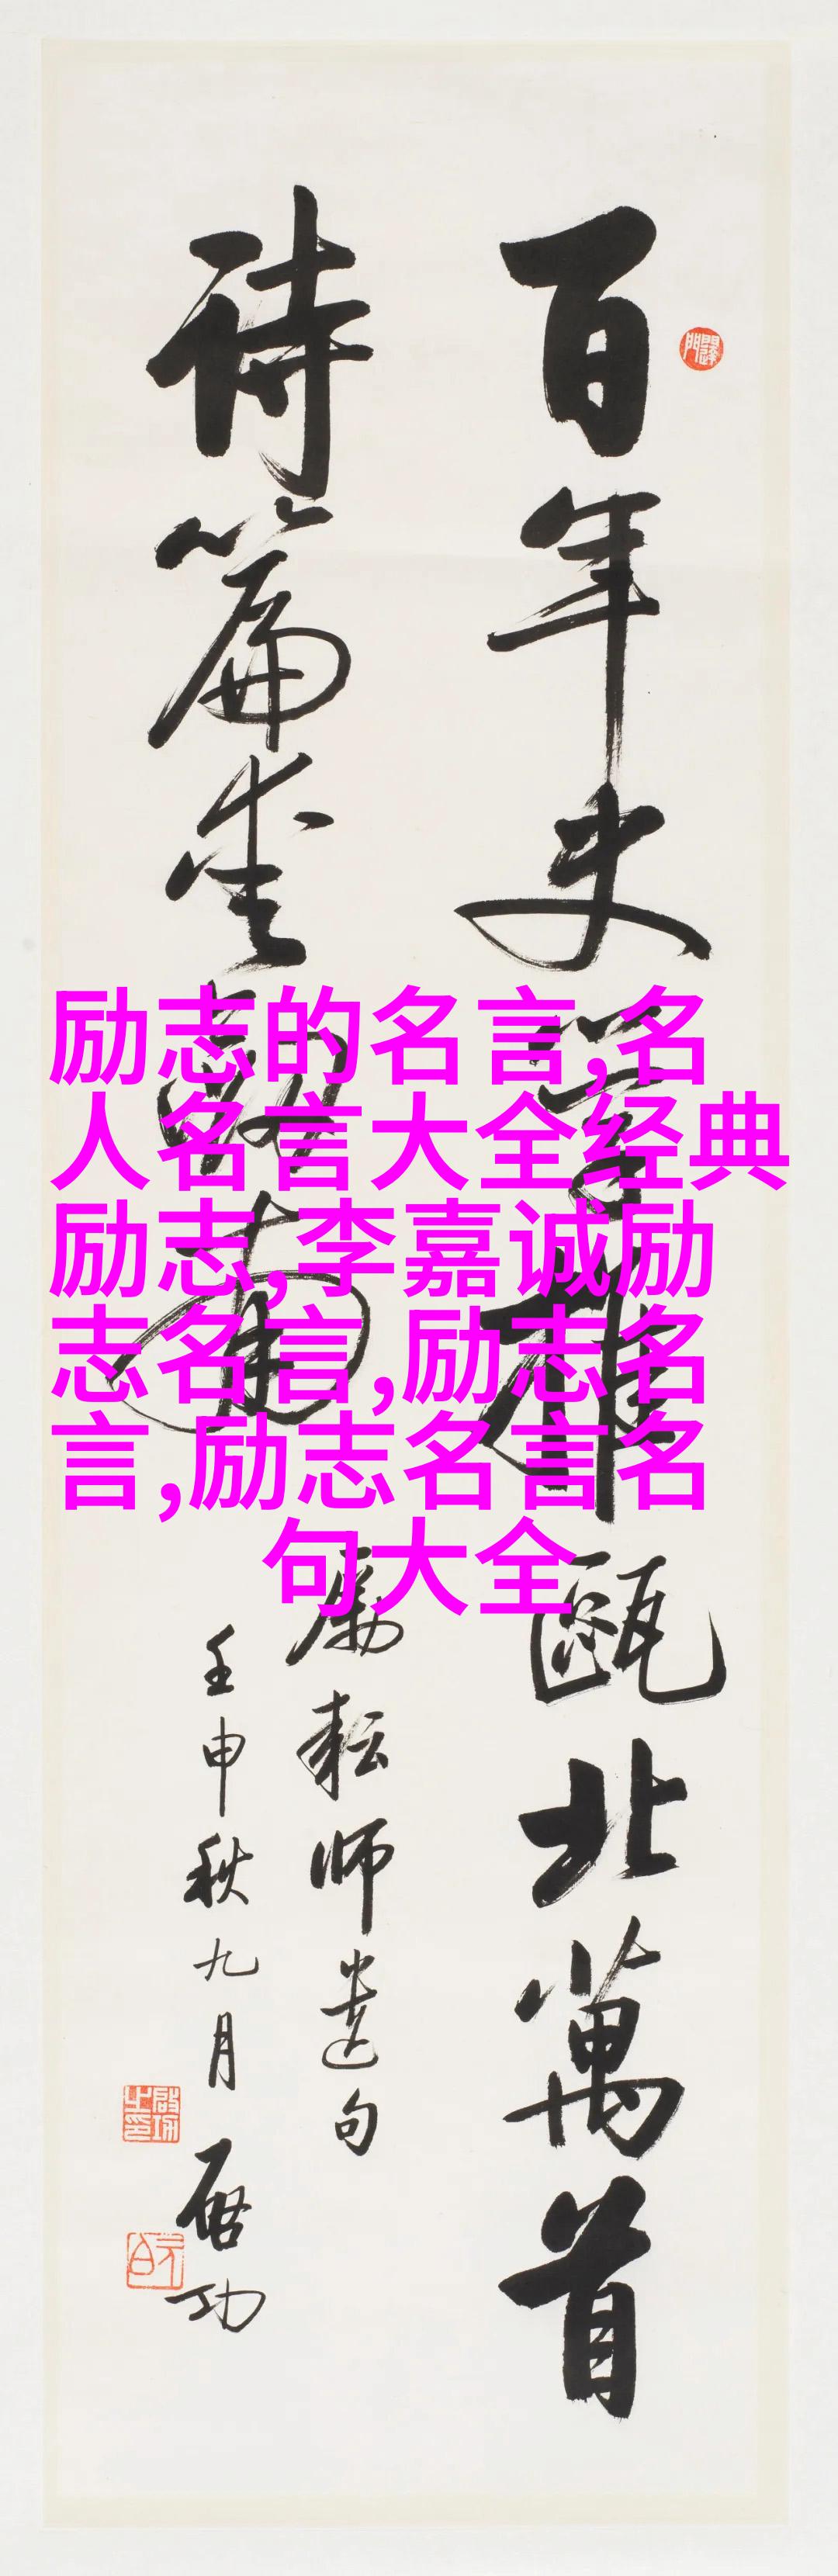 百年史學推甌北萬首
詩篇愛劍南
勵耘師遺句
壬申秋九月
啓功
啟功之印
元白
励志的名言,名
人名言大全经典
励志,李嘉诚励
志名言,励志名
言,励志名言名
句大全